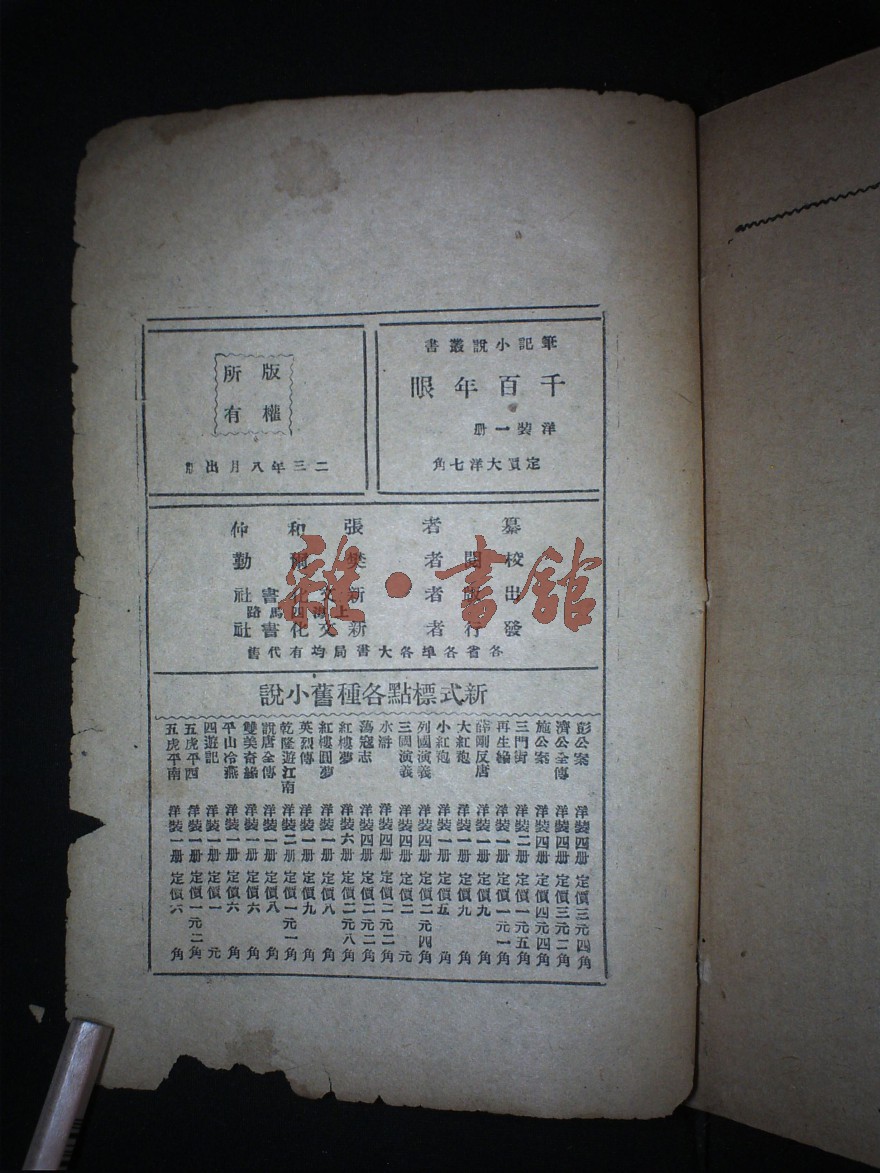 筆記小說叢書
千百年眼
洋裝一册
定價大洋七角
版權
所有
二三年八月出版
纂者 張和仲
校閱者 樊 勤
出版者 新文化書社
上海四馬路
發行者 新文化書社
各省各埠各大書局均有代售
新式標點各種舊小說
彭公案 洋裝四册 定價三元四角
濟公全傳 洋裝四册 定價三元二角
施公案 洋裝四册 定價四元四角
三門街 洋裝二册 定價一元五角
再生緣 洋裝一册 定價一元一角
薛剛反唐 洋裝一册 定價九角
大紅袍 洋裝一册 定價九角
小紅袍 洋裝一册 定價五角
列國演義 洋裝四册 定價二元四角
三國演義 洋裝四册 定價二元
水滸 洋裝四册 定價二元二角
蕩寇志 洋裝四册 定價二元二角
紅樓夢 洋裝六册 定價二元八角
紅樓圓夢 洋裝一册 定價八角
英烈傳 洋裝一册 定價九角
乾隆遊江南 洋裝二册 定價一元一角
說唐全傳 洋裝一册 定價八角
雙美奇緣 洋裝一册 定價六角
平山冷燕 洋裝一册 定價六角
四遊記 洋裝一册 定價一元
五虎平西 洋裝一册 定價一元二角
五虎平南 洋裝一册 定價六角
雜·書館